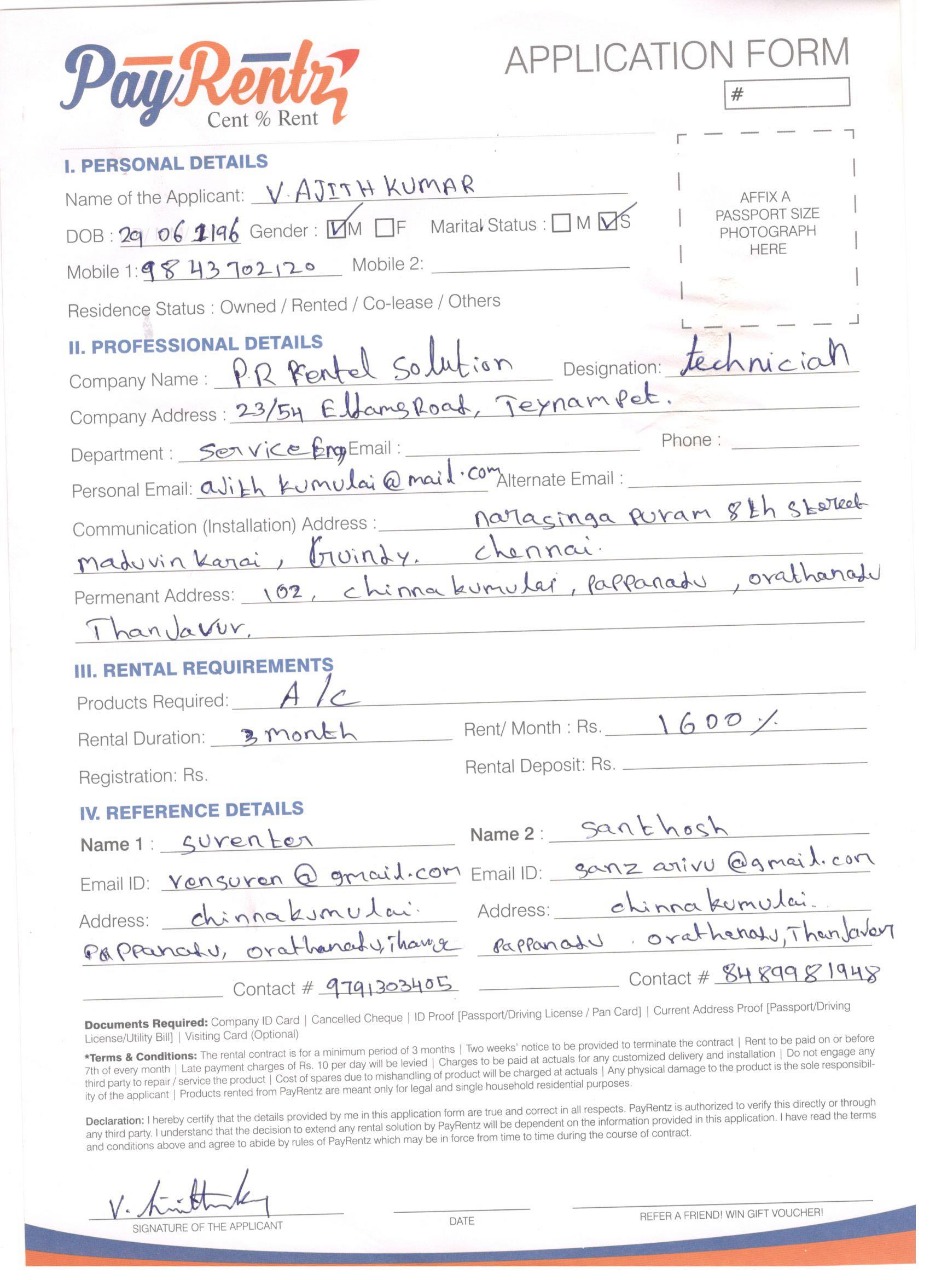 PayRentz
Cent % Rent
APPLICATION FORM
#
AFFIX A
PASSPORT SIZE
PHOTOGRAPH
HERE
I. PERSONAL DETAILS
Name of the Applicant: V. AJITH KUMAR
DOB : 29 06 1196 Gender : M F Marital Status : M S
Mobile 1: 9843702120 Mobile 2:
Residence Status : Owned / Rented / Co-lease / Others
II. PROFESSIONAL DETAILS
Company Name : P.R Rentel Solution Designation: technician
Company Address : 23/54 Eldams Road, Teynampet.
Department : Service Eng Email : Phone :
Personal Email: ajith kumulai@mail.com Alternate Email :
Communication (Installation) Address : narasinga puram 8th Stareet
maduvin karai, Guindy. chennai.
Permenant Address: 102, chinna kumulai, pappanadu, orathanadu
Thanjavur.
III. RENTAL REQUIREMENTS
Products Required: A/c
Rental Duration: 3 month Rent/ Month : Rs. 1600 /.
Registration: Rs. Rental Deposit: Rs.
IV. REFERENCE DETAILS
Name 1 : surenter Name 2 : santhosh
Email ID: vensuren@gmail.com Email ID: sanz arivu@gmail.com
Address: chinnakumulai. Address: chinnakumulai.
pappanadu, orathanadu, pappanadu. orathanadu, Thanjavur
Contact # 9791303405 Contact # 8489981948
Documents Required: Company ID Card | Cancelled Cheque | ID Proof [Passport/Driving License / Pan Card] | Current Address Proof [Passport/Driving
License/Utility Bill] | Visiting Card (Optional)
*Terms & Conditions: The rental contract is for a minimum period of 3 months | Two weeks' notice to be provided to terminate the contract | Rent to be paid on or before
7th of every month | Late payment charges of Rs. 10 per day will be levied | Charges to be paid at actuals for any customized delivery and installation | Do not engage any
third party to repair / service the product | Cost of spares due to mishandling of product will be charged at actuals | Any physical damage to the product is the sole responsibil-
ity of the applicant | Products rented from PayRentz are meant only for legal and single household residential purposes.
Declaration: I hereby certify that the details provided by me in this application form are true and correct in all respects. PayRentz is authorized to verify this directly or through
any third party. I understand that the decision to extend any rental solution by PayRentz will be dependent on the information provided in this application. I have read the terms
and conditions above and agree to abide by rules of PayRentz which may be in force from time to time during the course of contract.
V.
SIGNATURE OF THE APPLICANT DATE REFER A FRIEND! WIN GIFT VOUCHER!